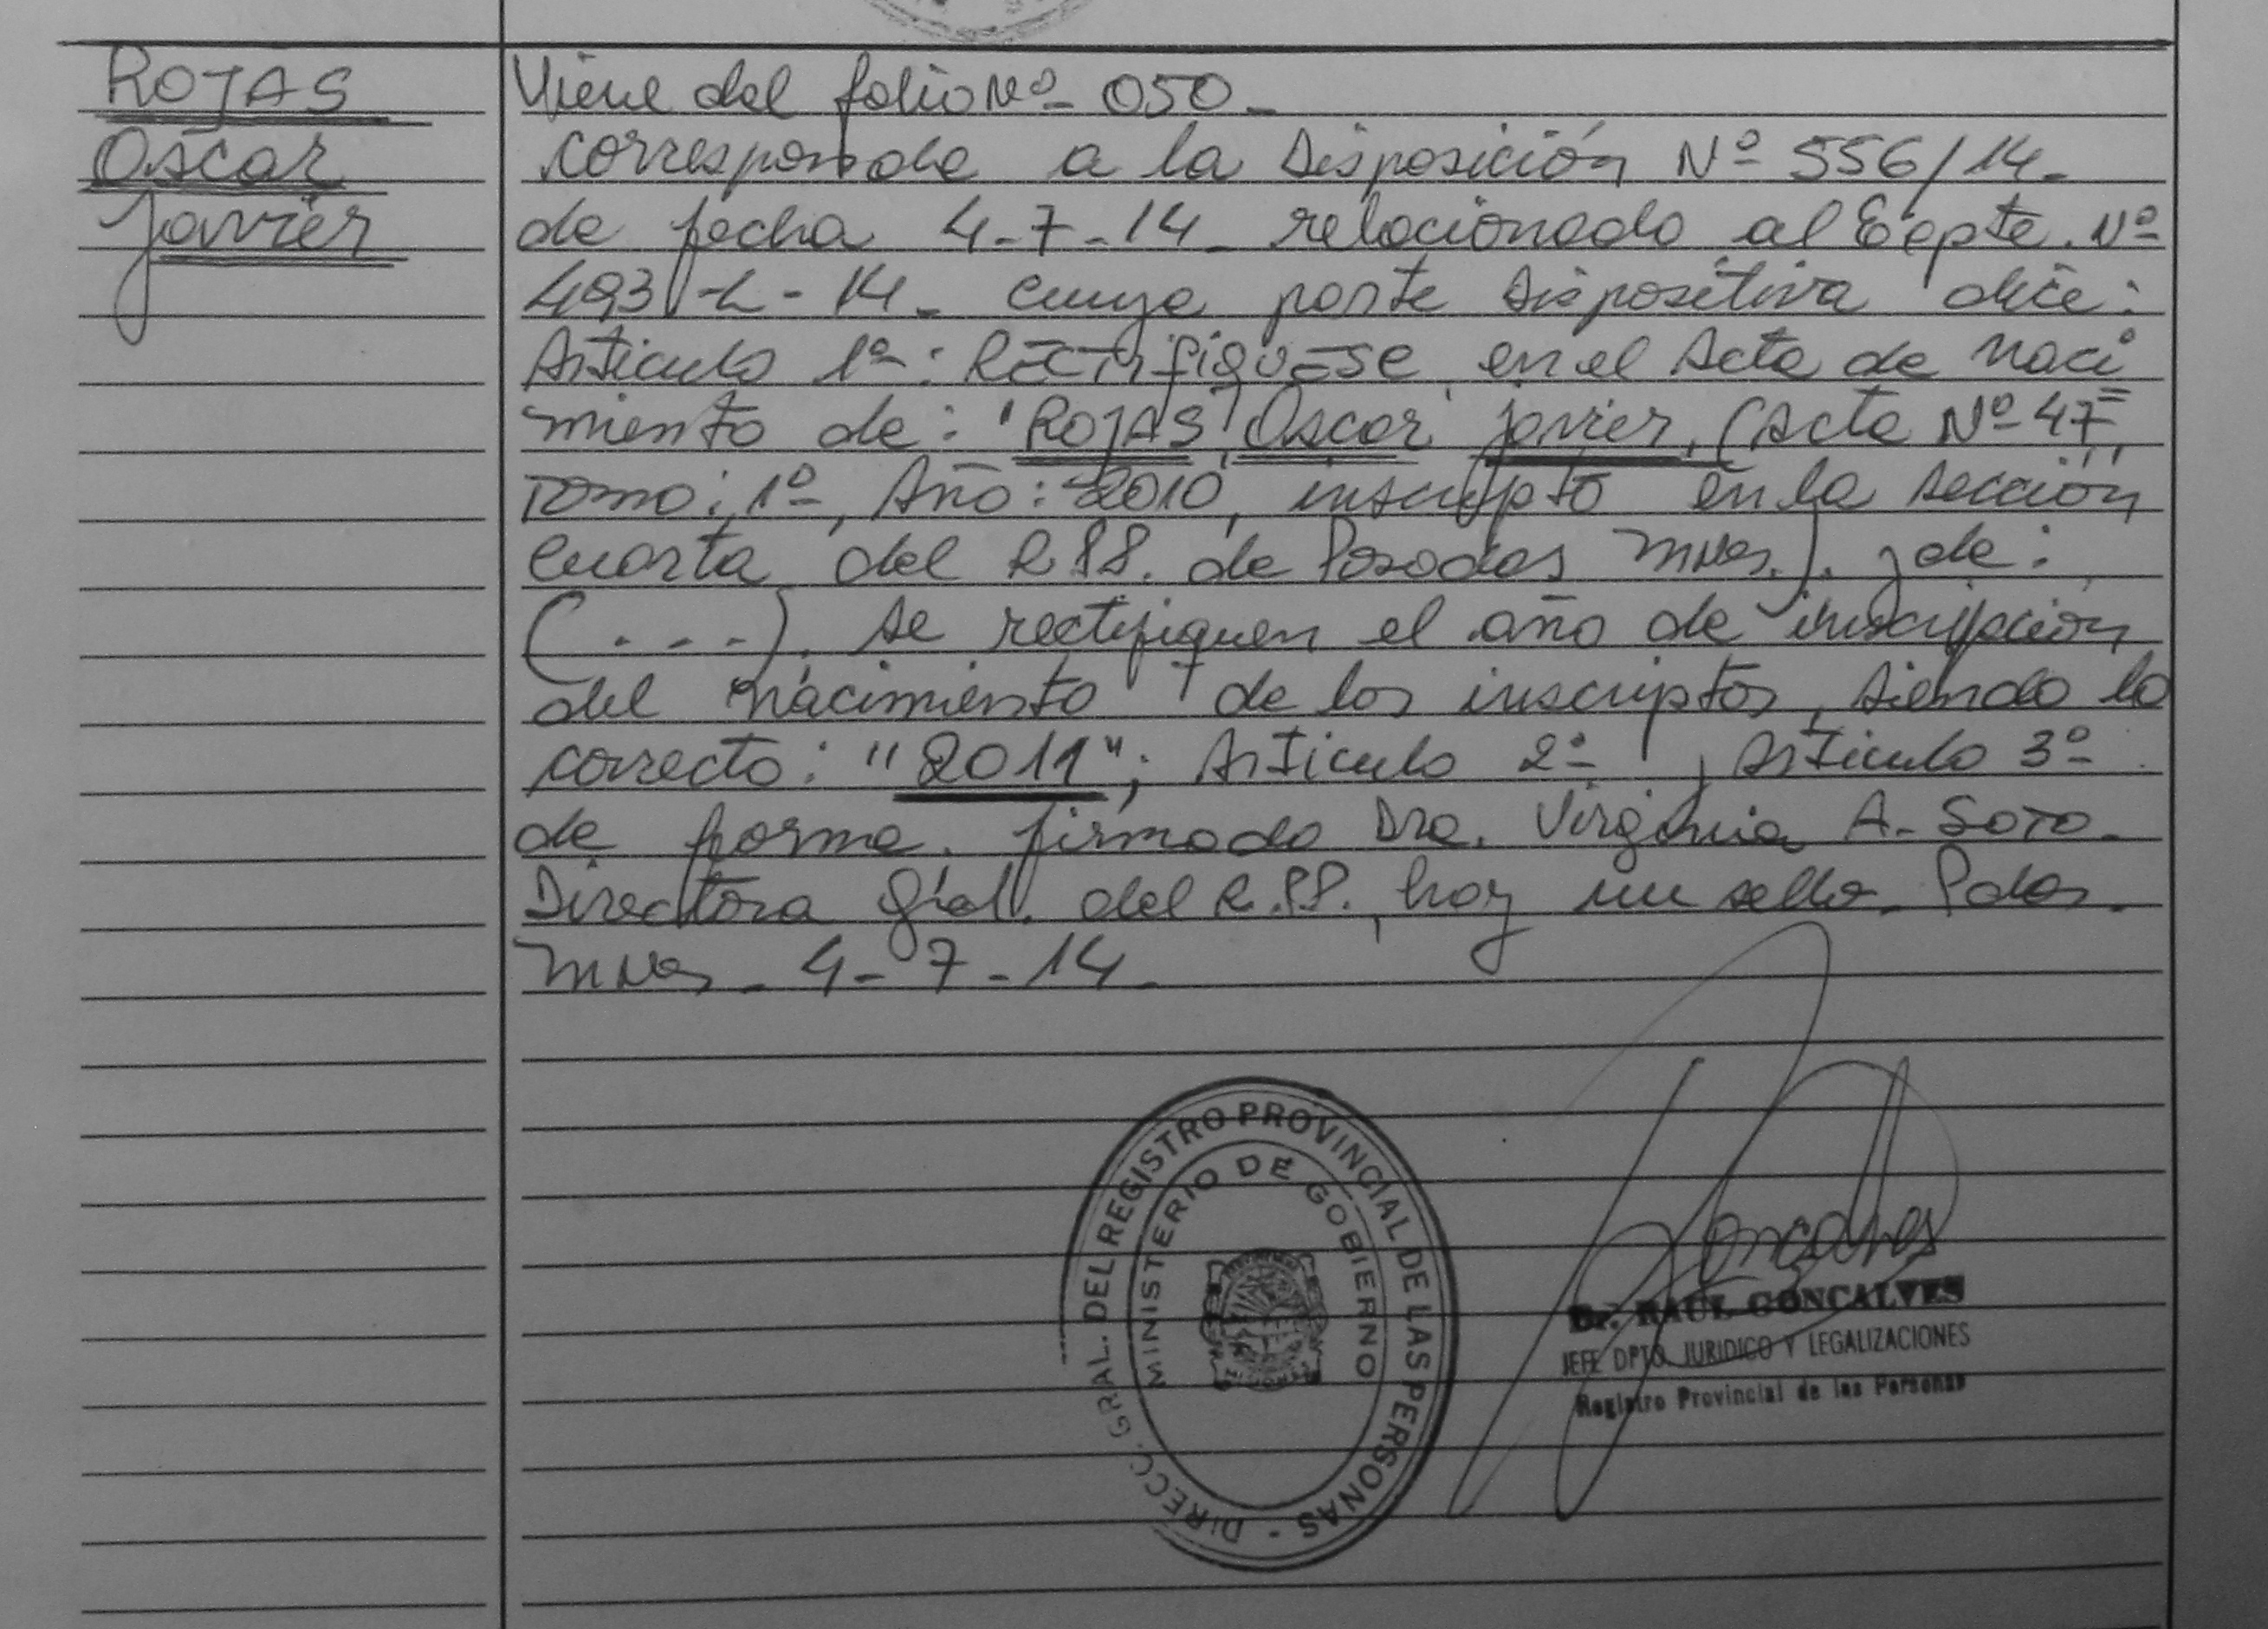 ROJAS
Oscar
Javier
Viene del folio Nº 050-
corresponde a la Disposición Nº 556/14-
de fecha 4-7-14- relacionado al Eepte. Nº
493-L-14- cuya parte dispositiva dice:
Articulo 1º: Rectifiquese en el Acta de naci
miento de: "ROJAS, Oscar Javier, (Acta Nº 47,
Tomo: 1º, Año: 2010, inscripto en la sección
cuarta del R.P.P. de Posadas Mnes.). y de:
(...). se rectifiquen el año de inscripción
del nacimiento de los inscriptos, siendo lo
correcto: "2011"; Articulo 2º, Articulo 3º
de forma. firmado Dra. Virginia A. Soto-
Directora Gral. del R.P.P., hay un sello. Pdas.
Mnes- 4-7-14-
DIRECC. GRAL. DEL REGISTRO PROVINCIAL DE LAS PERSONAS -
MINISTERIO DE GOBIERNO
Goncalves
Dr. RAUL GONCALVES
JEFE DPTO. JURIDICO Y LEGALIZACIONES
Registro Provincial de las Personas